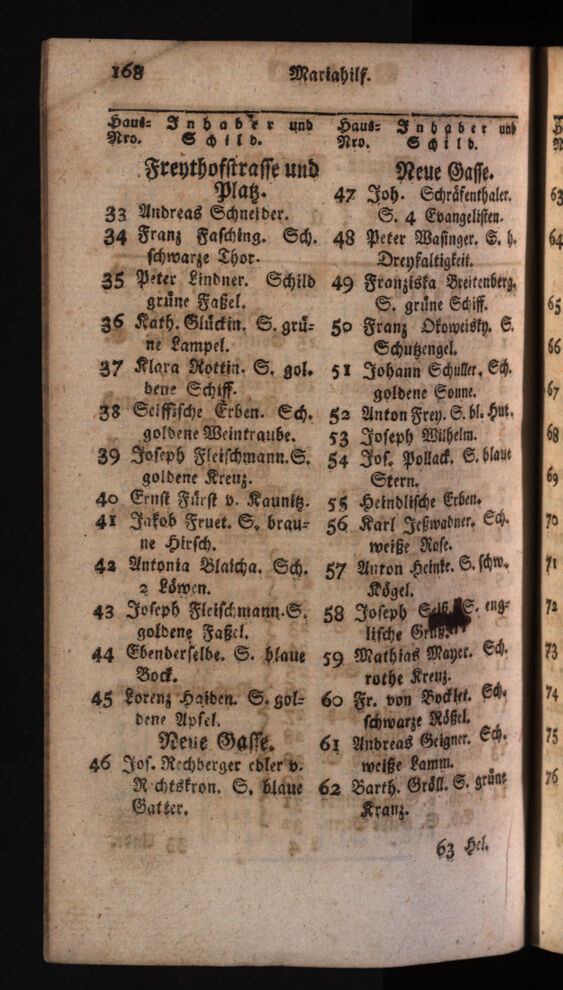 168 Mariahilf.
Haus= Inhaber und
Nro. Schild.
Freythofstrasse und
Platz.
33 Andreas Schneider.
34 Franz Fasching. Sch.
schwarze Thor.
35 Peter Lindner. Schild
grüne Faßel.
36 Kath. Glückin. S. grü=
ne Lampel.
37 Klara Rottin. S. gol.
dene Schiff.
38 Seiffische Erben. Sch.
goldene Weintraube.
39 Joseph Fleischmann. S.
goldene Kreuz.
40 Ernst Fürst v. Kaunitz.
41 Jakob Fruet. S. brau=
ne Hirsch.
42 Antonia Blaicha. Sch.
2 Löwen.
43 Joseph Fleischmann. S.
goldene Faßel.
44 Ebenderselbe. S. blaue
Bock.
45 Lorenz Haiden. S. gol=
dene Apfel.
Neue Gasse.
46 Jos. Rechberger edler v.
Rechtskron. S. blaue
Gatter.
Haus= Inhaber und
Nro. Schild.
Neue Gasse.
47 Joh. Schräfenthaler.
S. 4 Evangelisten.
48 Peter Wasinger. S. h.
Dreyfaltigkeit.
49 Franziska Breitenberg.
S. grüne Schiff.
50 Franz Okoweisky. S.
Schutzengel.
51 Johann Schuller. Sch.
goldene Sonne.
52 Anton Frey. S. bl. Hut.
53 Joseph Wilhelm.
54 Jos. Pollack. S. blaue
Stern.
55 Heindlische Erben.
56 Karl Jeßwadner. Sch.
weiße Rose.
57 Anton Heinke. S. schw.
Kögel.
58 Joseph S. eng=
lische Gruß.
59 Mathias Mayer. Sch.
rothe Kreuz.
60 Fr. von Bocklet. Sch.
schwarze Rößel.
61 Andreas Geigner. Sch.
weiße Lamm.
62 Barth. Gröll. S. grüne
Kranz.
63 Hel.
63
64
65
66
67
68
69
70
71
72
73
74
75
76